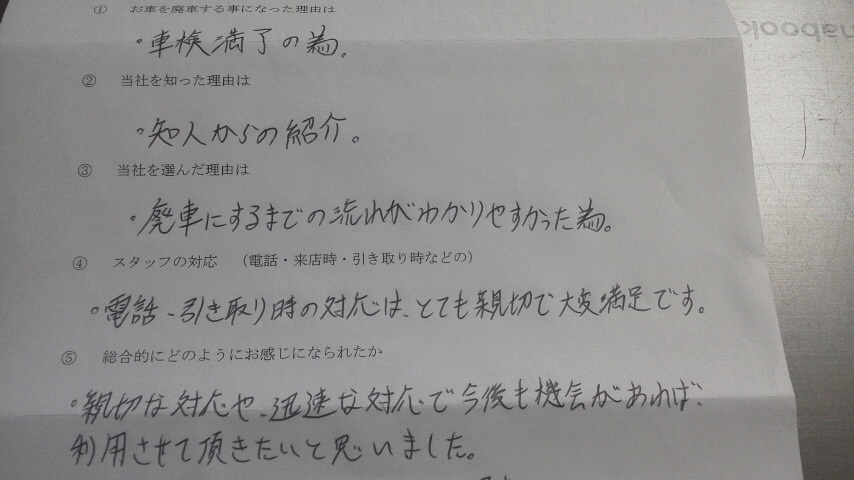 ① お車を廃車する事になった理由は
・車検満了の為。
② 当社を知った理由は
・知人からの紹介。
③ 当社を選んだ理由は
・廃車にするまでの流れがわかりやすかった為。
④ スタッフの対応 (電話・来店時・引き取り時などの)
・電話、引き取り時の対応は、とても親切で大変満足です。
⑤ 総合的にどのようにお感じになられたか
・親切な対応や、迅速な対応で今後も機会があれば、
利用させて頂きたいと思いました。